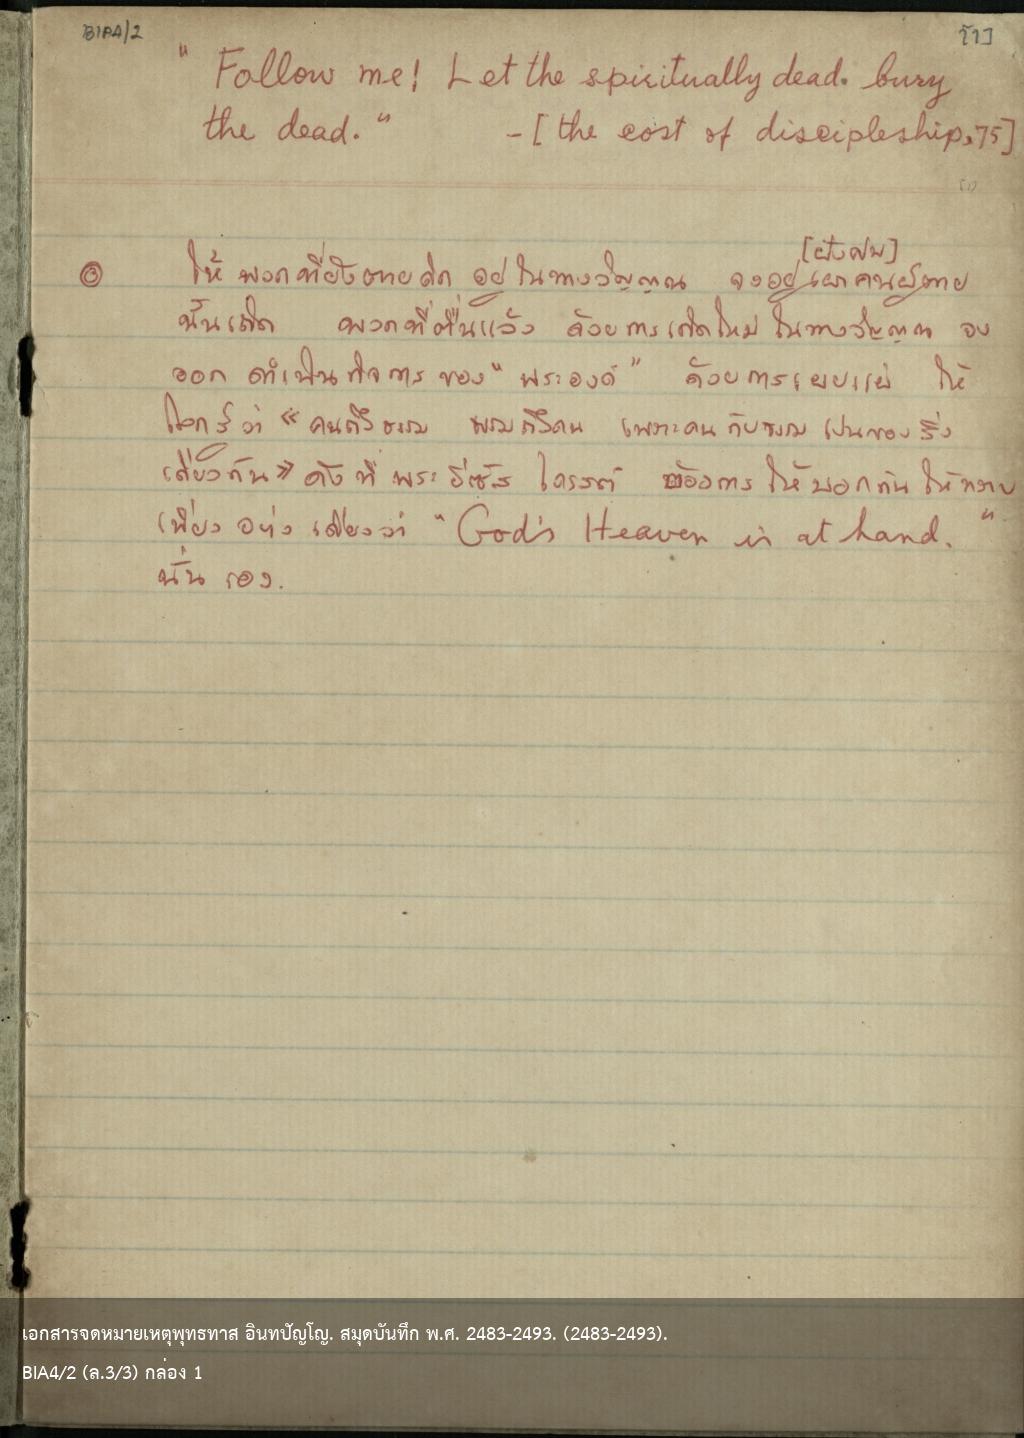 BIA4/2
[1]
" Follow me! Let the spiritually dead. bury
the dead. " -[the cost of discipleship, 75]
[ฝังศพ]
ให้ พวกที่ยังตายดิก อยู่ ในทางวิญญาณ จงอยู่เผาคนผู้ตาย
นั้นเถิด พวกที่ตื่นแล้ว ด้วยการเกิดใหม่ ในทางวิญญาณ จง
ออก ดำเนินกิจการ ของ " พระองค์ " ด้วยการเผยแผ่ ให้
โลกรู้ว่า " คนถึงธรรม ธรรมถึงคน เพราะคนกับธรรม เป็นของ สิ่ง
เดียวกัน " ดังที่ พระ ยีซัส ไครสต์ ต้องการ ให้บอกกัน ให้ทราบ
เพียง อย่าง เดียวว่า " God's Heaven is at hand. "
นั่น เอง.
เอกสารจดหมายเหตุพุทธทาส อินทปัญโญ. สมุดบันทึก พ.ศ. 2483-2493. (2483-2493).
BIA4/2 (ล.3/3) กล่อง 1